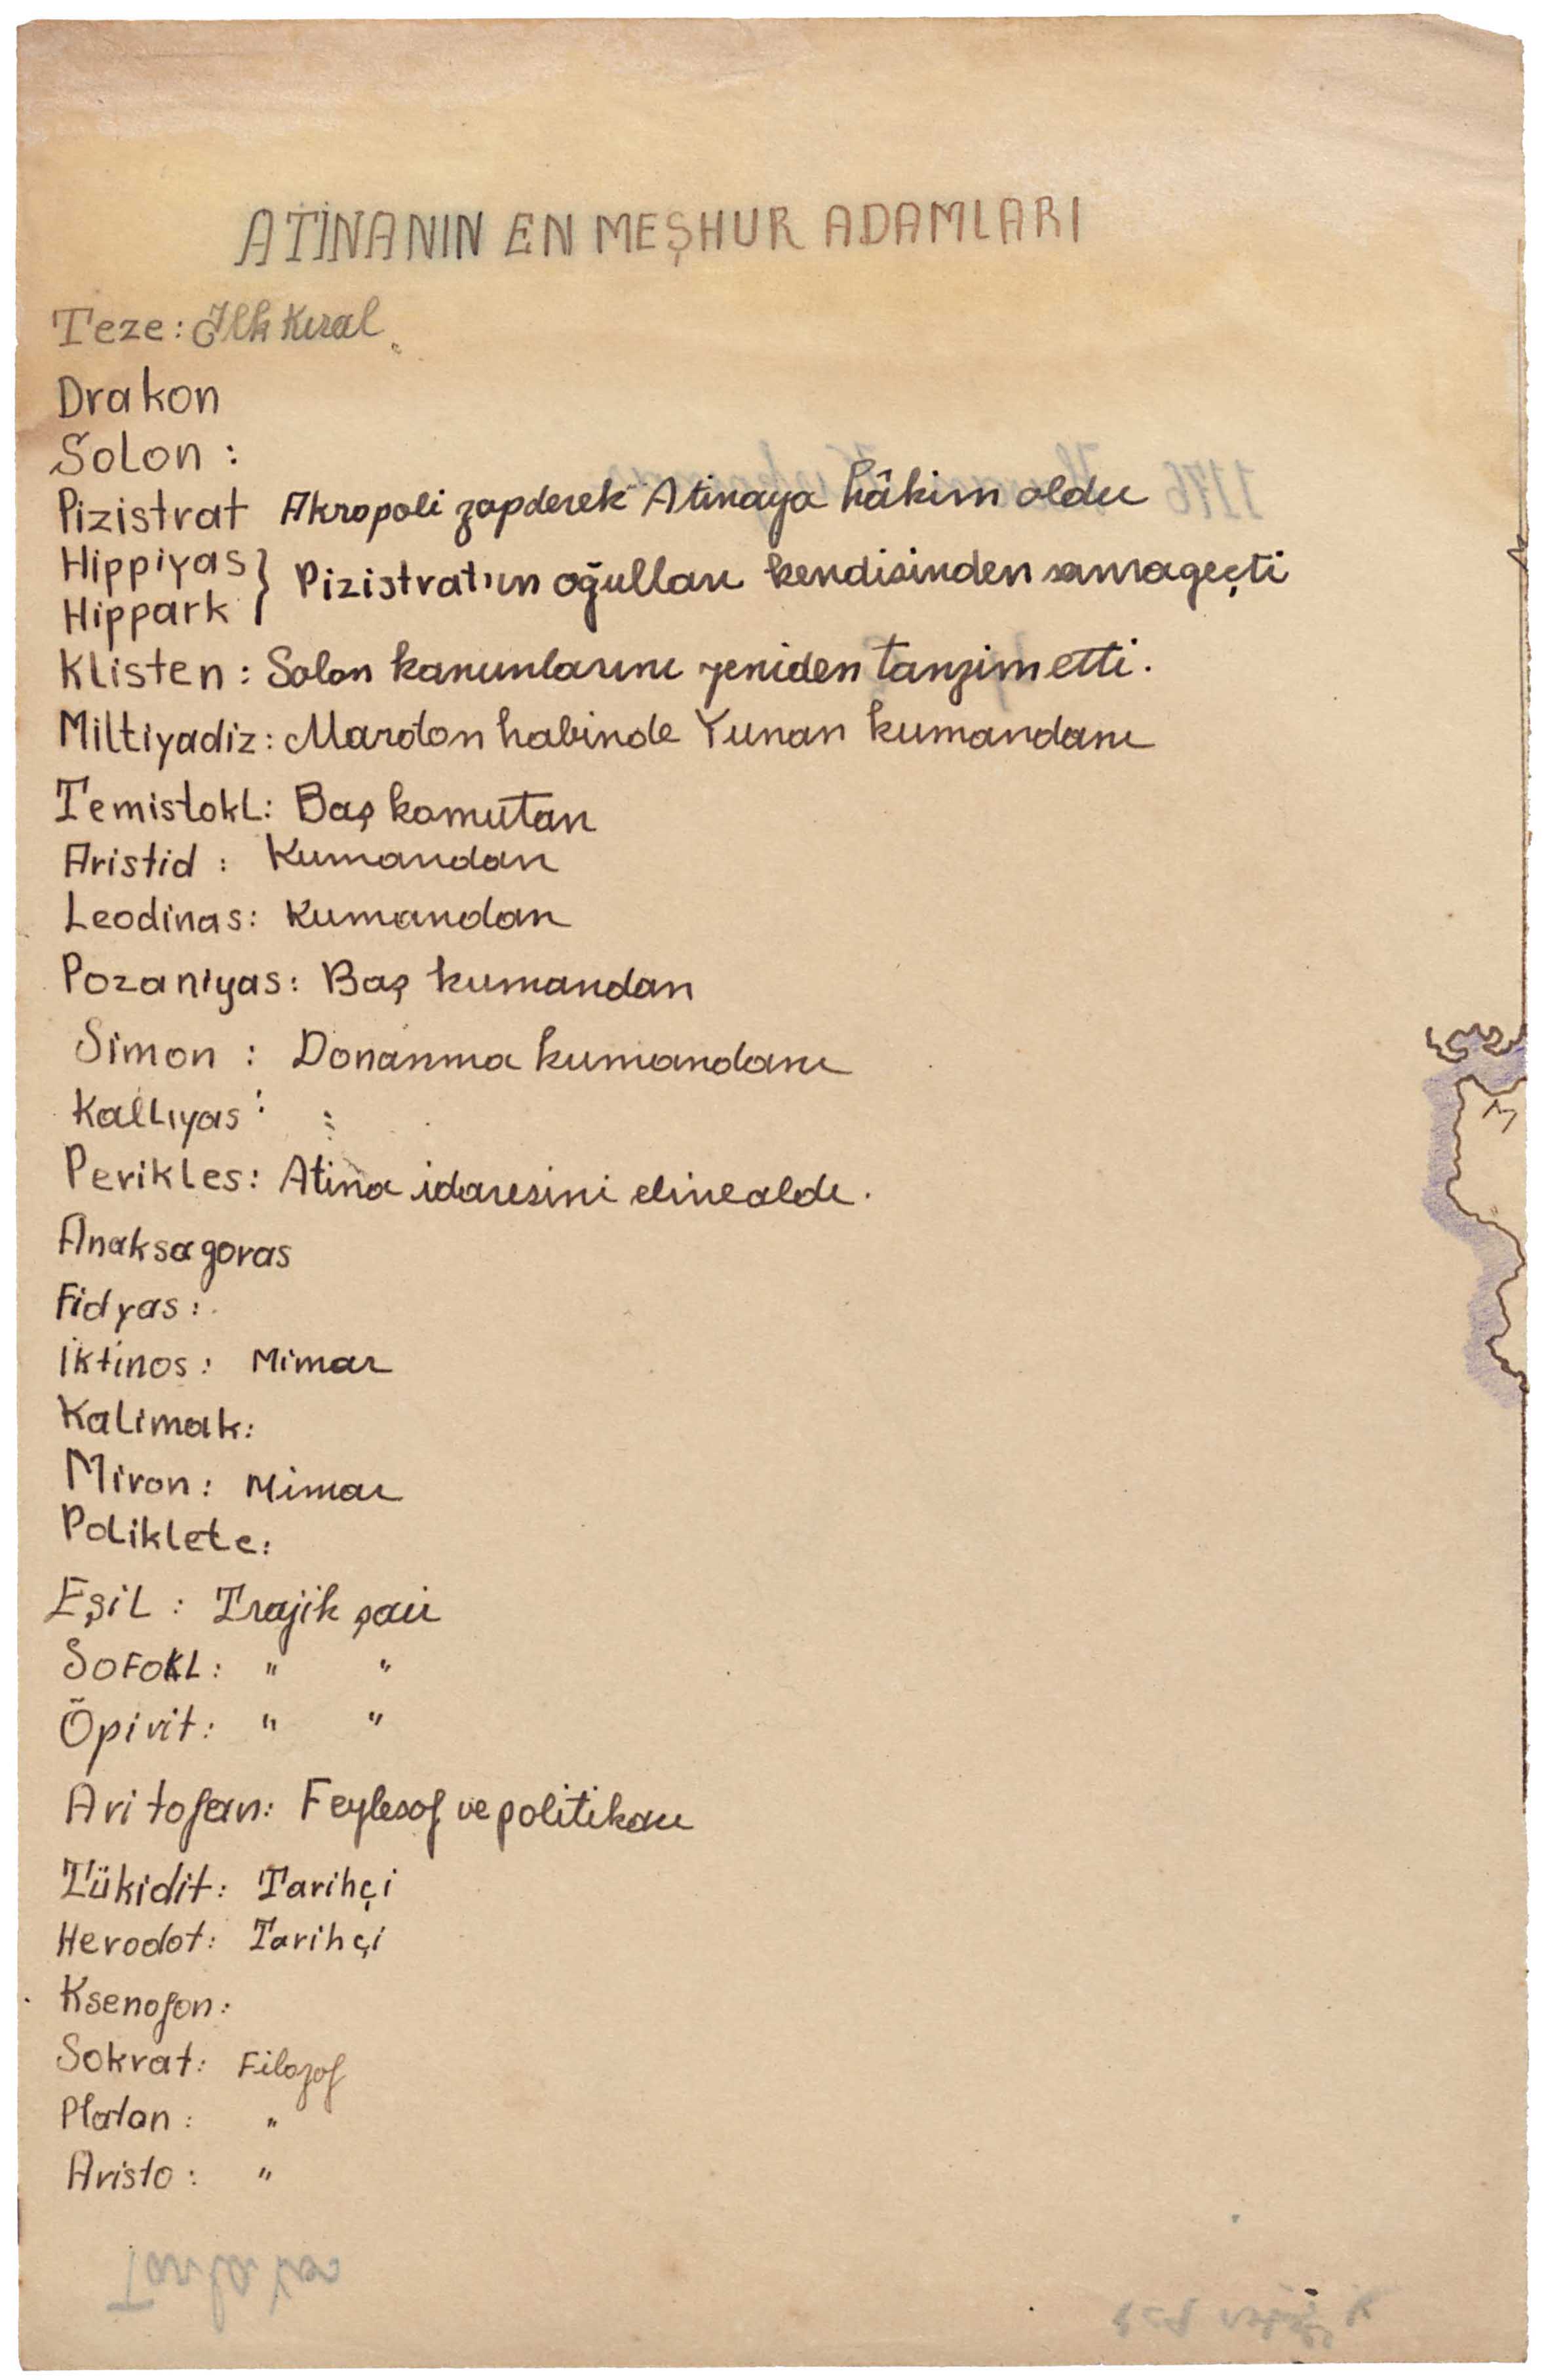 ATİNANIN EN MEŞHUR ADAMLARI
Teze: İlk Kıral
Drakon
Solon :
Pizistrat Akropoli zapderek Atinaya hâkim oldu
Hippiyas } Pizistrat'ın oğulları kendisinden sonra geçti
Hippark
Klisten : Solon kanunlarını yeniden tanzim etti.
Miltiyadiz: Maroton habinde Yunan kumandanı
Temistokl: Baş komutan
Aristid : Kumandan
Leodinas: Kumandan
Pozaniyas: Baş kumandan
Simon : Donanma kumandanı
Kalliyas :
Perikles: Atina idaresini eline aldı.
Anaksagoras
Fidyas :
İktinos : Mimar
Kalimak:
Miron : Mimar
Poliklete:
Eşil : Trajik şair
Sofokl : " "
Öpirit: " "
Aritofan: Feylesof ve politikacı
Tükidit: Tarihçi
Herodot: Tarihçi
Ksenofon:
Sokrat: Filozof
Platon : "
Aristo : "